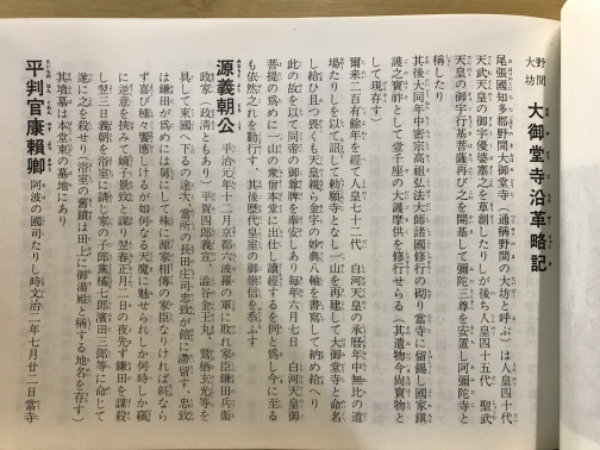 野間
大坊
大御堂寺沿革略記
尾張國知多郡野間大御堂寺(通稱野間の大坊と呼ぶ)は人皇四十代
天武天皇の御宇優婆塞之を草創したりしが後ち人皇四十五代 聖武
天皇の御宇行基菩薩再び之を開基して彌陀三尊を安置し阿彌陀寺と
稱したり
其後大同年中密宗高祖弘法大師諸國修行の砌り當寺に留錫し國家鎭
護之寶祚として堂千座の大護摩供を修行せらる(其遺物今尙寶物と
して現存す)
爾來二百有餘年を經て人皇七十二代 白河天皇の承曆年中無比の道
場たりしを以て詔して勅願寺となし一山を再建して大御堂寺と命名
し給ひ且つ畏くも天皇親ら金字の妙典八軸を書寫して納め給へり
此の故を以て同帝の御尊牌を奉安しあり每年六月七日 白河天皇御
菩提の爲めに一山の衆僧本堂に出仕し讀經するを例と爲し今に至る
も依然之れを勤行す、其後歷代皇室の御崇信を忝ふす
源義朝公 平治元年十二月京都六波羅の軍に敗れ家臣鎌田兵衞
政家(政淸ともあり)平賀四郎義宣 澁谷金王丸、鷲栖玄光等を
具して東國へ下るの途次、當所の長田庄司忠致が館に滯留す、忠致
は鎌田が爲めには舅にして殊に源家相傳の家臣なりければ斜なら
ず喜び種々饗應しけるが如何なる天魔に魅せられしか何時しか竊
に逆意を挾みて嫡子景致と謀り翌春正月二日の夜先ず鎌田を謀殺
し翌三日義朝を浴室に請じ家の子郎黨橘七郎濱田三郎等に命じて
遂に之を殺せり(浴室の舊蹟は田上に御湯殿と稱する地名を存す)
其墳墓は本堂東の墓地にあり
平判官康賴卿 阿波の國司たりし時文治二年七月廿二日當寺